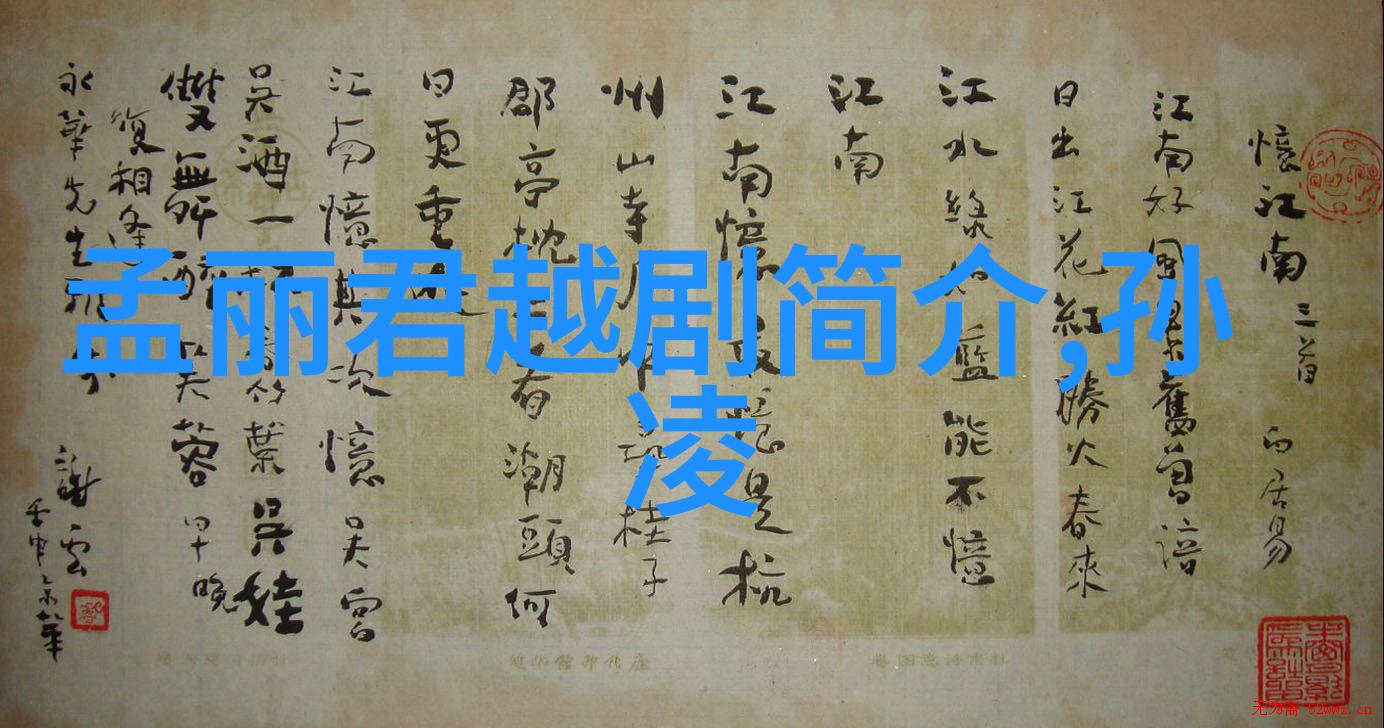 孟丽君越剧简介,孙
凌
憶江南 三首 白居易
江南好風景舊曾諳
日出江花紅勝火春來
江水綠如藍能不憶
江南
江南憶最憶是杭
州山寺月中桂子
郡亭枕上看潮頭何
日更重
江南憶其次憶吳宮
吳酒一春竹葉吳娃
雙芙蓉早晚
復相逢
永華先生雅
謝雲
壬申